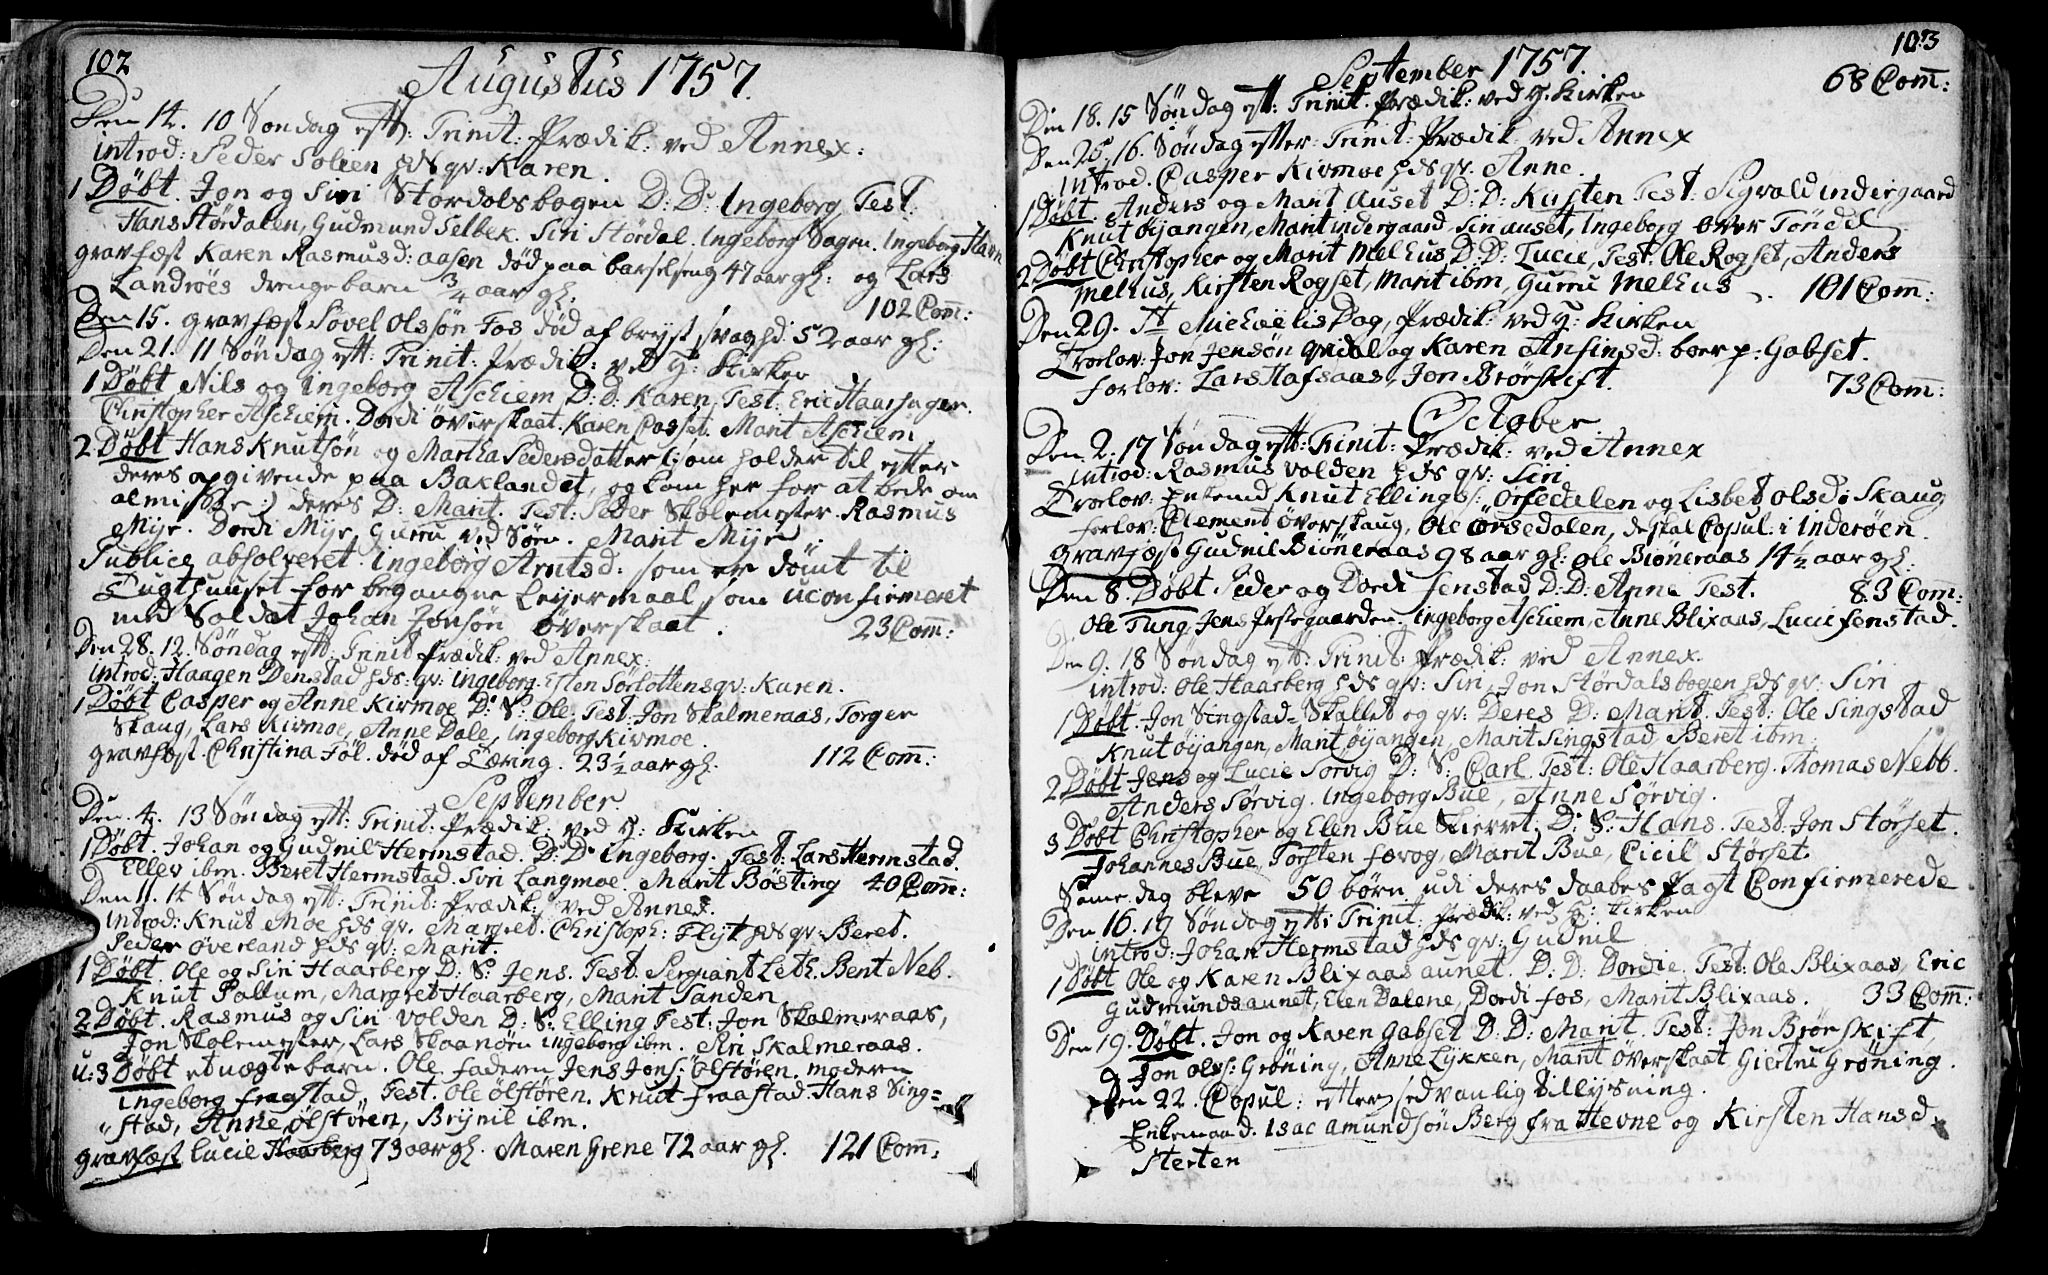 102
Augustus 1757.
Den 14. 10 Søndag eft: Trinit: Prædik: ved Annex:
introd: Peder Soleen hds qv: Karen.
1 Døbt. Jon og Siri Stordolsbogen D: D: Ingeborg Test:
Hans Størdalen, Gudmund Selbek. Siri Størdal. Ingeborg Sagen. Ingeborg Havn
gravfæst Karen Rasmusd: aasen død paa barselseng 47 aar gl: og Lars
Landrøes drengebarn 3/4 aar gl: 102 Com̄:
Den 15. gravfæst Sovel Olssøn Fos død af bryst svaghd. 52 aar gl:
Den 21. 11 Søndag eft: Trinit: Prædik: ved H: Kirken
1 Døbt Nils og Ingeborg Aschiem D: D: Karen. Test: Eric Haarhager.
Christopher Aschiem. Dordi överskaat. Karen Posset. Marit Aschiem
2. Døbt Hans Knutsøn og Martha Pedersdatter (: som holder til efter
deres opgivende paa Baklandet, og kom her for at bede om
almisse :) deres D: Marit. Test: Peder Skolemester. Rasmus
Myr. Dordi Myr, Guru ved Søen. Marit Myr.
Publice absolveret. Ingeborg Arntsd: som er dømt til
Tugthuuset for begangne Leyermaal som uconfirmeret
med Soldat Johan Jonsøn överskaat. 23 Com̄:
Den 28. 12. Søndag eft: Trinit Prædik: ved Annex.
introd: Haagen Denstad hds: qv: ingeborg. Esten Sørlottens qv: Karen.
1 Døbt Casper og Anne Kirmoe D: S: Ole. Test: Jon Skalmeraas, Torger
Skaug, Lars Kirmoe, Anne Dale, Ingeborg Kirmoe.
gravfæst. Christina Föl. død af Tæring. 23 1/2 aar gl. 112 Com̄:
September.
Den. 4. 13 Søndag eft: Trinit: Prædik: ved H: Kirken
1 Døbt. Johan og Gudnil Hermstad. D: D: Ingeborg. Test: Lars Hermstad.
Ellev ibm. Beret Hermstad. Siri Langmoe. Marit Bøsting 40 Com̄:
Den 11. 14 Søndag eft: Trinit: Prædik: ved Annex.
introd: Knut Moe hds qv. Margret. Christoph: Flyt hds qv: Beret.
Peder överland hds qv: Marit.
1 Døbt. Ole og Siri Haarberg D: S: Jens. Test: Sergiant Leth. Bent Neb.
Knut Pallum, Margret Haarberg, Marit Sanden
2 Døbt. Rasmus og Siri volden D: S: Elling Test: Jon Skalmeraas,
Jon Skolemester, Lars Skaanøen ingeborg ibm. Ari Skalmeraas.
u: 3 Døbt et uægte barn. Ole. faderen Jens Jons: ölstören. moderen
ingeborg fraastad. Test. Ole ölstören. Knut fraastad. Hans Sing=
"stad, Anne ölstören, Brynil ibm.
gravfæst Lucie Haarberg 73 aar gl. Maren Grene 72 aar gl. 121 Com̄:
103
September 1757.
Den 18. 15 Søndag eft: Trinit: Prædik: ved H. Kirken 68 Com̄:
Den 25. 16. Søndag efter: Trinit: Prædik. ved Annex
introd. Casper Kirmoe hds qv: Anne.
1 Døbt. Anders og Marit Auset D: D: Kirsten Test: Sigvald indergaard
Knut øyangen, Marit indergaard, Siri auset, Ingeborg over Tøndel
2. Døbt Christopher og Marit Melhus D: D: Lucie, Test: Ole Rogset, Anders
Melhus, Kirsten Rogset, Marit ibm, Gurru Melhus. 101 Com̄:
Den 29. St Michaëlis Dag, Prædik: ved H: Kirken
Trolov: Jon Jensøn Qvidal og Karen Ansinsd: boer p: Gabset.
forlov: Lars Hafsaas, Jon Brørskift. 73 Com̄:
October.
Den. 2. 17 Søndag eft: Trinit: Prædik: ved Annex
introd: Rasmus volden hds qv: Siri
Trolov: Enkemd Knut Ellings: örsedalen og Lisbet olsd: Skaug
forlov: Clement överskaug, Ole örsedalen, de skal Copul: i Inderöen.
gravfæst Gudnil Biöneraas 98 aar gl: Ole Biöneraas 14 1/2 aar gl.
Den 8. Døbt. Peder og Dordi fenstad D: D: Anne Test. 83 Com̄:
Ole Tung, Jens Prstegaarden. Ingeborg Aschiem, Anne Blixaas, Lucie fenstad.
Den 9. 18 Søndag eft: Trinit: Prædik: ved Annex.
introd: Ole Haarberg hds qv: Siri, Jon Stördalsbogen hds qv: Siri
1 Døbt. Jon Singstad=Skallet og qv: Deres D: Marit. Test: Ole Singstad
Knut øyangen, Marit øyangen, Marit Singstad Beret ibm:
2 Døbt Jens og Lucie Sørvig D: S: Carl. Test: Ole Haarberg. Thomas Nebb.
Anders Sørvig. Ingeborg Bue, Anne Sørvig.
3 Døbt Christopher og Elen Bue Skierret. D: S: Hans. Test: Jon Störset.
Johannes Bue, Torsten færog, Marit Bue, Cicil Störset.
Same dag bleve 50 børn udi deres daabes Pagt Confirmerede
Den 16. 19 Søndag eft: Trinit: Prædik: ved H: Kirken
introd: Johan Hermstad hds qv: Gudnil
1 Døbt Ole og Karen Blixaas aunet. D: D: Dordie. Test: Ole Blixaas, Eric
Gudmundsaunet, Elen Dalene, Dordi fos, Marit Blixaas. 33 Com̄:
Den 19. Døbt. Jon og Karen Gabset D: D: Marit. Test: Jon Brørskift,
Jon Ols: Grøning, Anne Lykken, Marit överskaat Giertru Grøning.
Den 22. Copul: efter sedvanlig tillysning.
Enkemand. Isac amundsøn Berg fra Hevne og Kirsten Hansd
Sterten